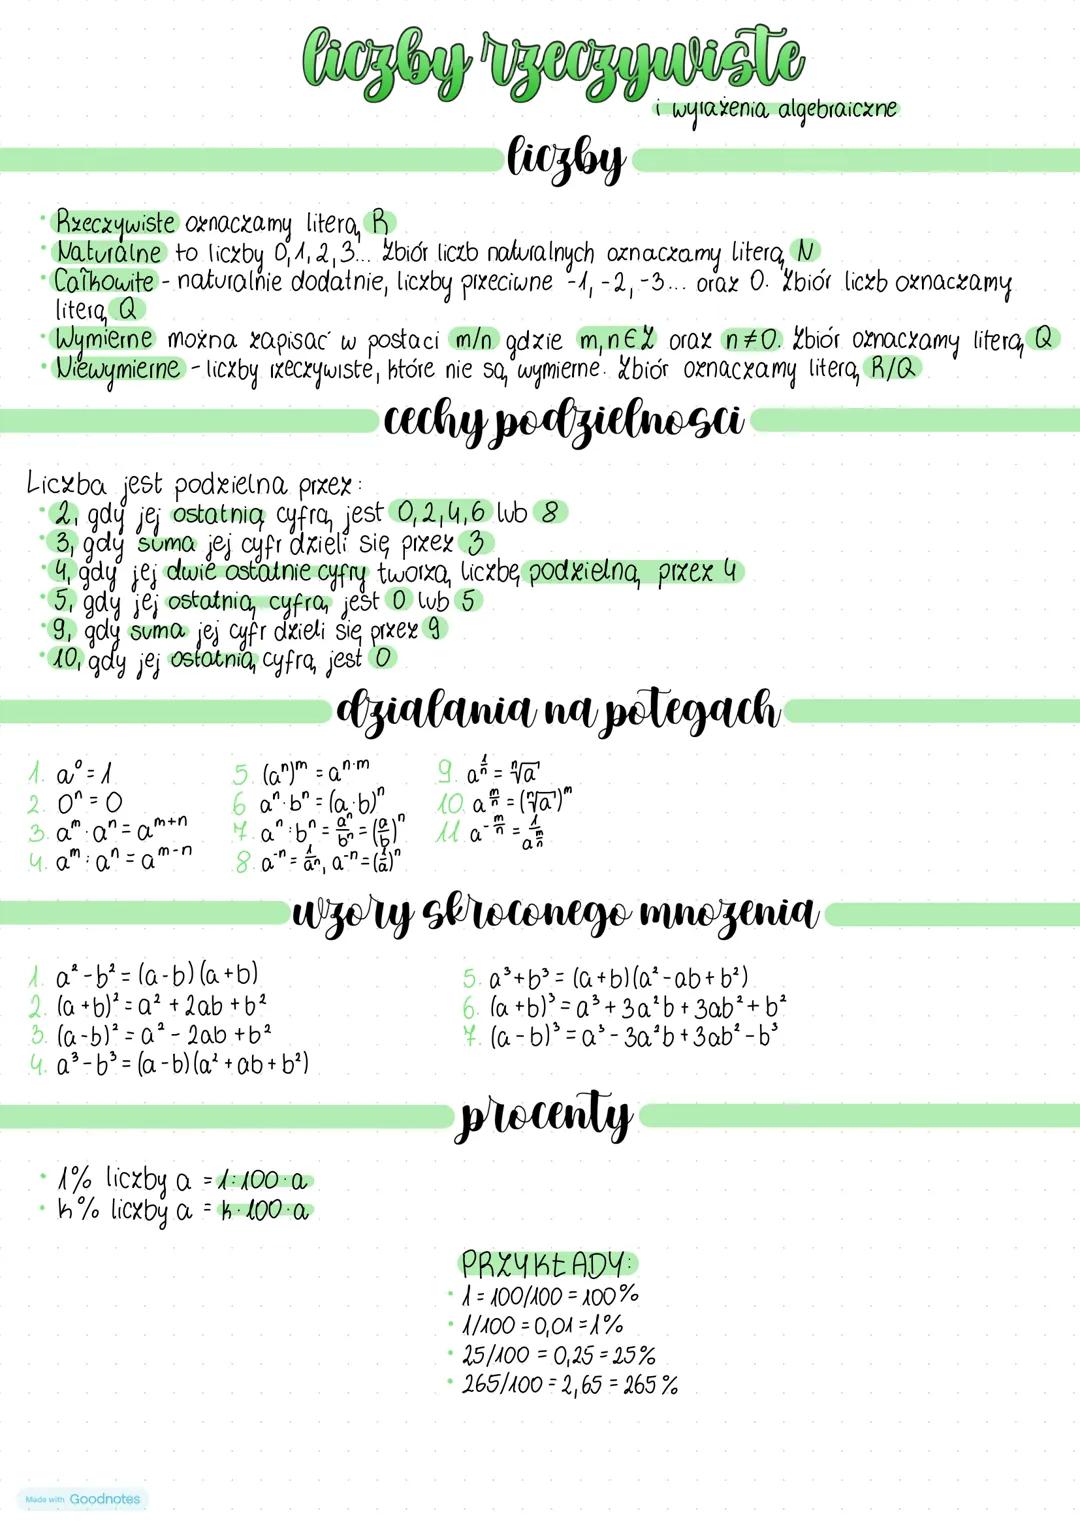 liczby rzeczywiste
i wyrażenia algebraiczne
liczby
• Rzeczywiste oznaczamy literą R
• Naturalne to liczby 0,1,2,3... Zbiór liczb naturalnych oznaczamy literą N
• Całkowite - naturalnie dodatnie, liczby przeciwne -1, -2, -3... oraz 0. Zbiór liczb oznaczamy
literą Q
• Wymierne można zapisać w postaci m/n gdzie m,n∈Z oraz n≠0. Zbiór oznaczamy literą Q
• Niewymierne - liczby rzeczywiste, które nie są wymierne. Zbiór oznaczamy literą R/Q
cechy podzielnosci
Liczba jest podzielna przez:
• 2, gdy jej ostatnią cyfrą jest 0,2,4,6 lub 8
• 3, gdy suma jej cyfr dzieli się przez 3
• 4, gdy jej dwie ostatnie cyfry tworzą liczbę podzielną przez 4
• 5, gdy jej ostatnią cyfrą jest 0 lub 5
• 9, gdy suma jej cyfr dzieli się przez 9
• 10, gdy jej ostatnią cyfrą jest 0
dzialania na potegach
1. a⁰ = 1
2. 0ⁿ = 0
3. aᵐ · aⁿ = aᵐ⁺ⁿ
4. aᵐ : aⁿ = aᵐ⁻ⁿ
5. (aⁿ)ᵐ = a^(n·m)
6 aⁿ · bⁿ = (a·b)ⁿ
7. aⁿ : bⁿ = aⁿ/bⁿ = (a/b)ⁿ
8. a⁻ⁿ = 1/aⁿ, a⁻ⁿ = (1/a)ⁿ
9. a^(1/n) = ⁿ√a
10. a^(m/n) = (ⁿ√a)ᵐ
11. a^(-m/n) = 1/a^(m/n)
wzory skroconego mnozenia
1. a² - b² = (a-b)(a+b)
2. (a+b)² = a² + 2ab + b²
3. (a-b)² = a² - 2ab + b²
4. a³ - b³ = (a-b)(a² + ab + b²)
5. a³ + b³ = (a+b)(a² - ab + b²)
6. (a+b)³ = a³ + 3a²b + 3ab² + b²
7. (a-b)³ = a³ - 3a²b + 3ab² - b³
procenty
• 1% liczby a = 1:100·a
• k% liczby a = k·100·a
PRZYKŁADY:
• 1 = 100/100 = 100%
• 1/100 = 0,01 = 1%
• 25/100 = 0,25 = 25%
• 265/100 = 2,65 = 265%
Made with Goodnotes